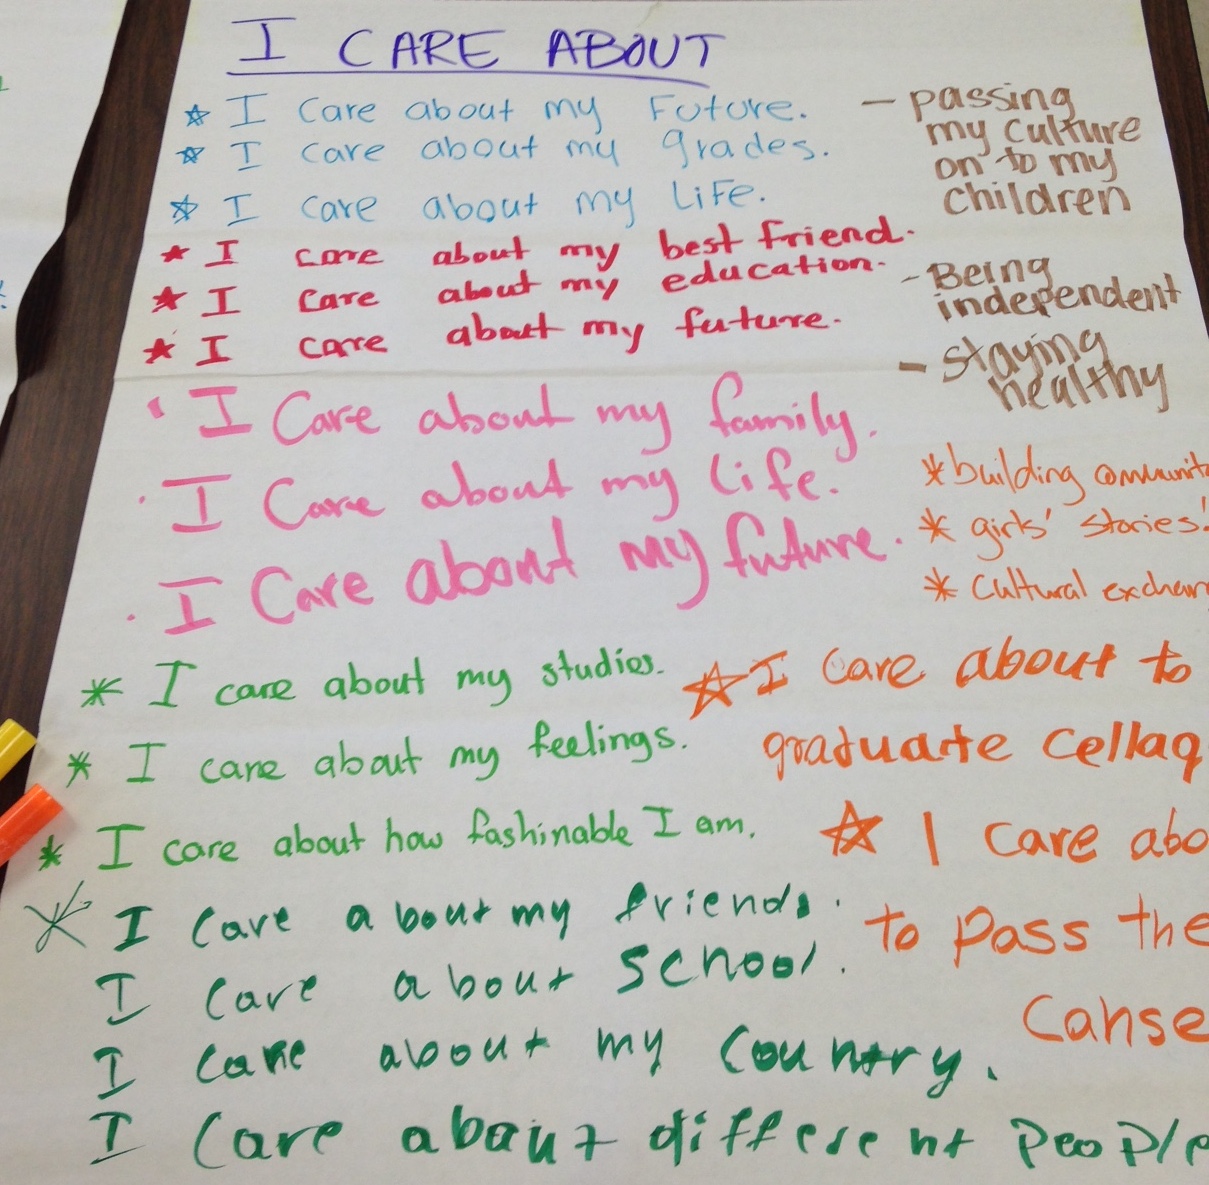 I CARE ABOUT
I care about my Future.
I care about my grades.
I care about my Life.
I care about my best friend.
I care about my education.
I care about my future.
I Care about my family.
I Care about my life.
I Care about my future.
I care about my studies.
I care about my feelings.
I care about how fashinable I am.
I care about my friends.
I care about school.
I care about my country.
I care about different people
- passing
my culture
on to my
children
- Being
independent
- staying
healthy
* building communit
* girls' stories!
* Cultural exchan
I care about to
graduate cellag
I care abo
to pass the
Canse